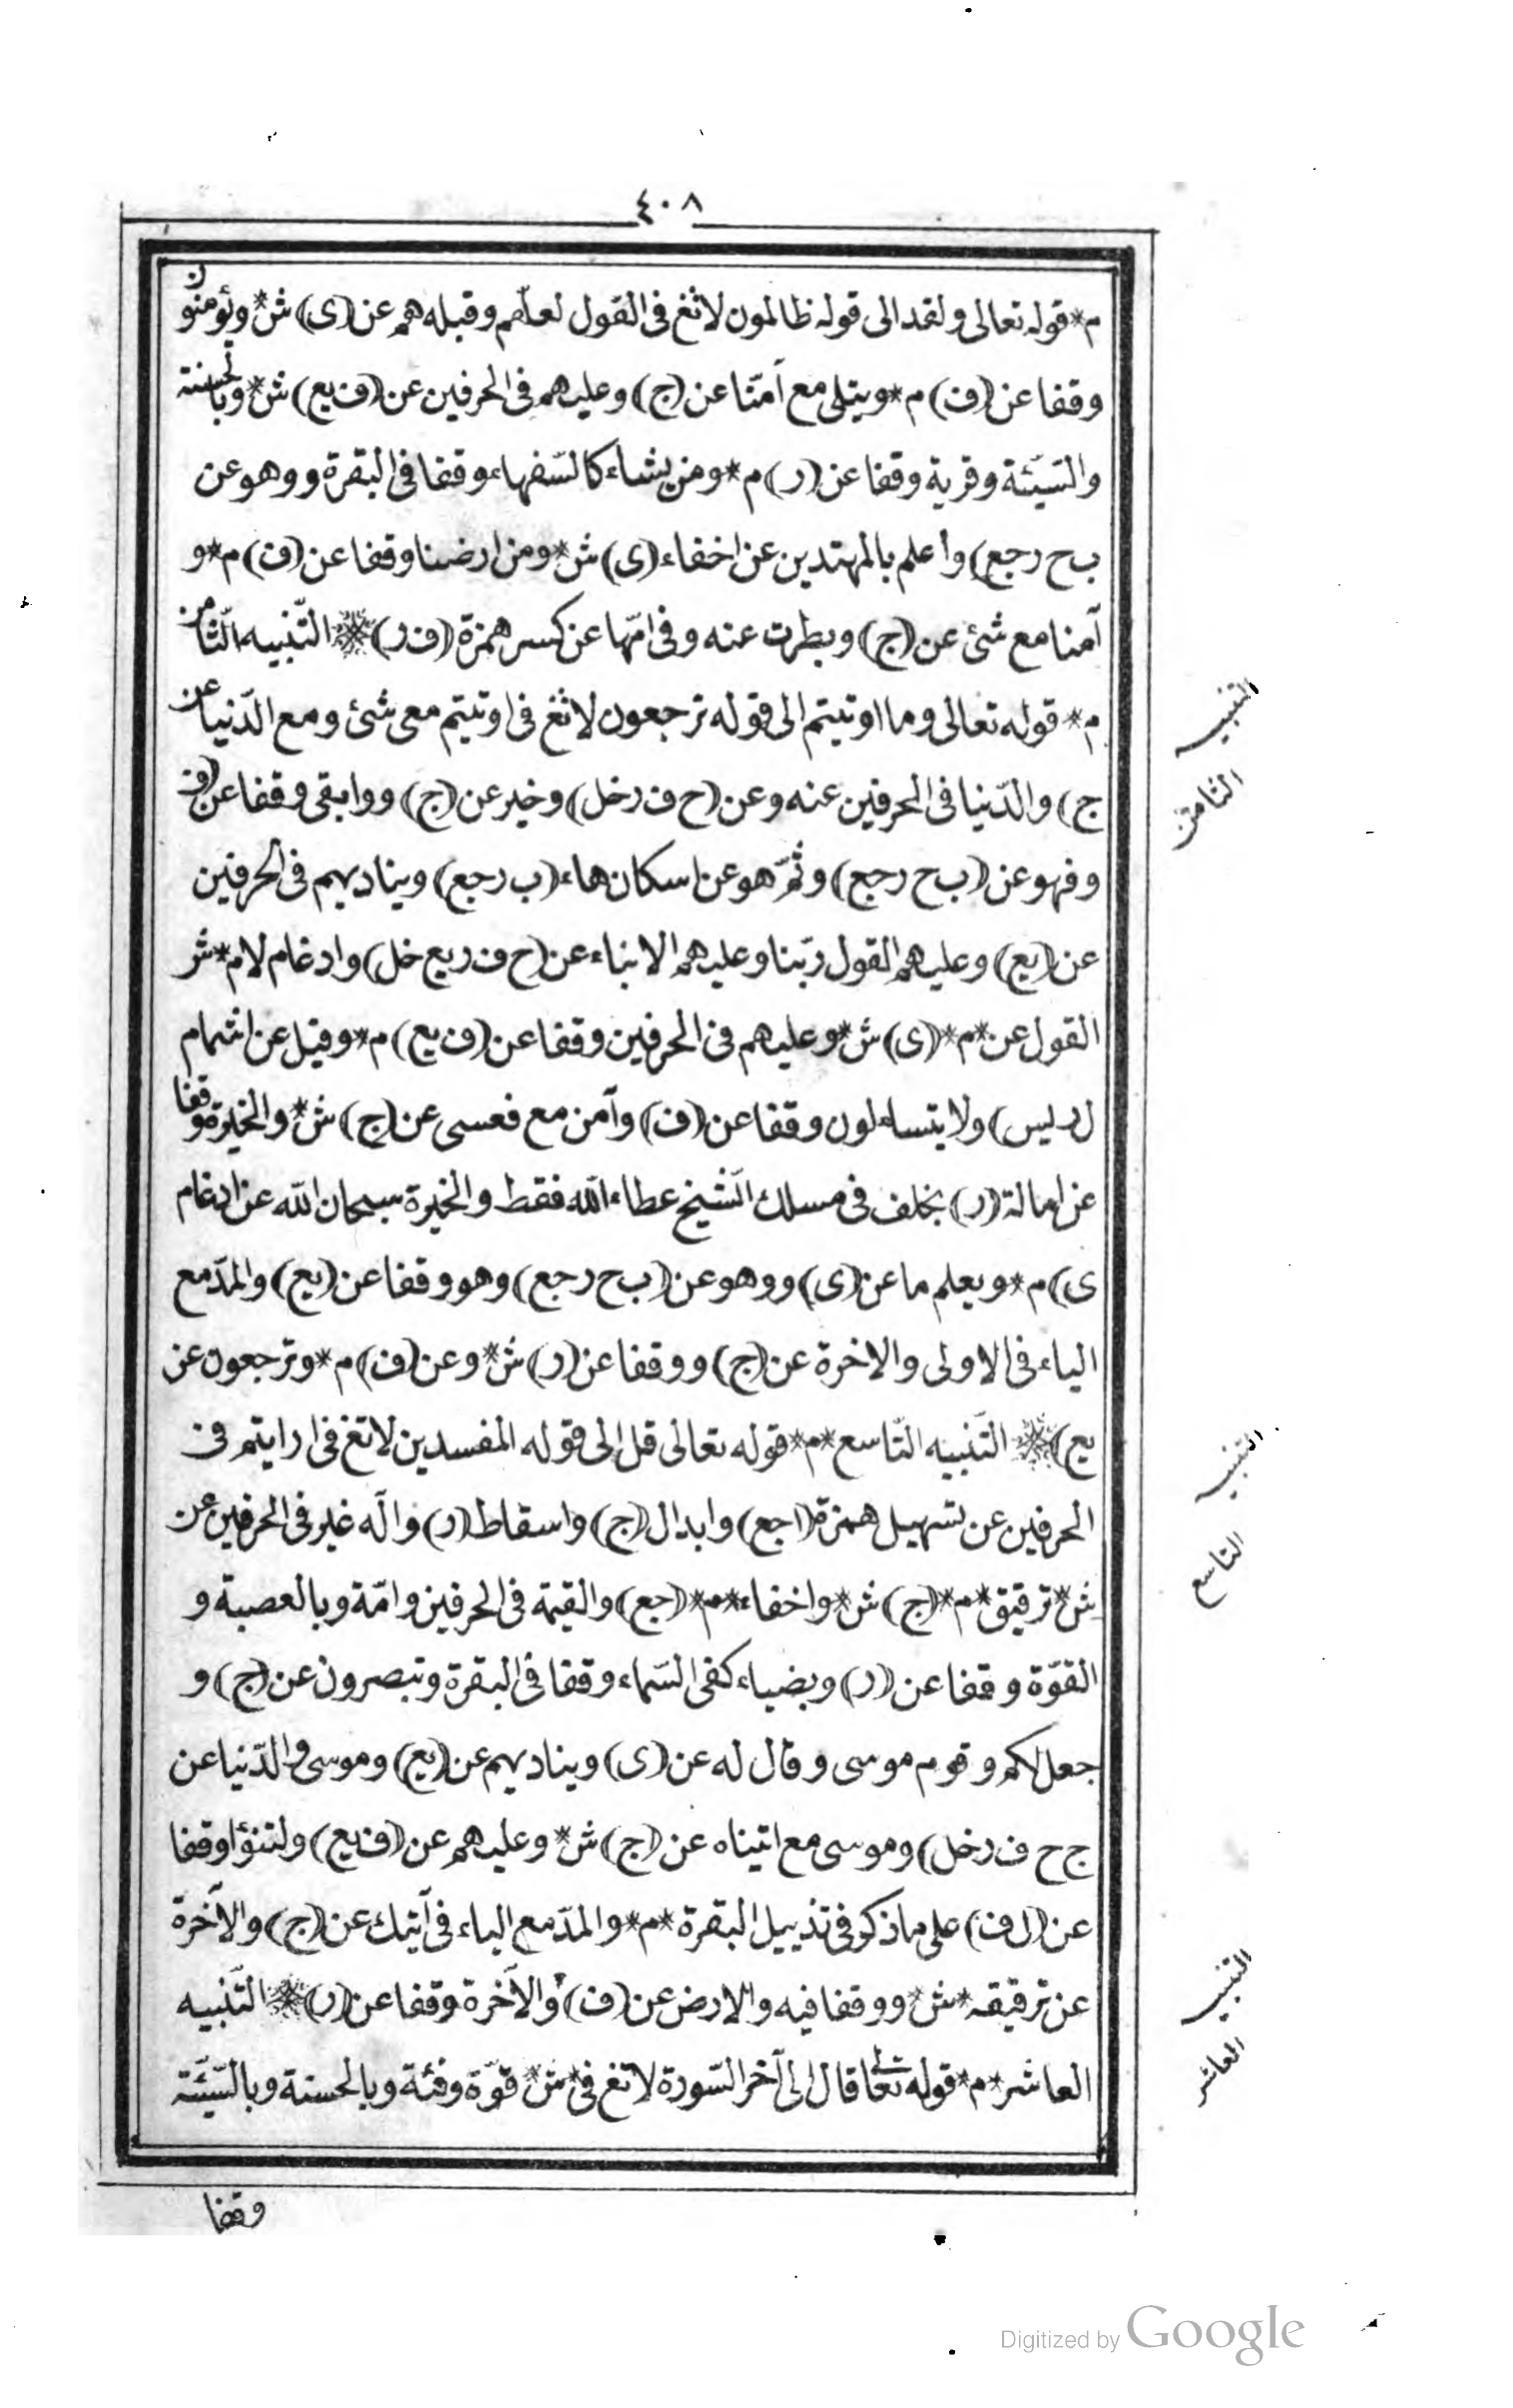 ٤٠٨
م* قوله تعالى ولقد الى قوله ظالمون لا تغ فى القول لعلّهم وقبله هم عن (ى) ش* ويؤمنون
وقفا عن (ف) م* ويتلى مع آمنّا عن (ج) وعليهم فى الحرفين عن (ف يع) ش* وبالحسنة
والسّيّئة وقرية وقفا عن (ر) م* ومن يشاء كالسّفهاء وقفا فى البقرة ووهو عن
ب ح رجع) وأعلم بالمهتدين عن اخفاء (ى) ش* ومن ارضنا وقفا عن (ف) م* و
آمنا مع شئ عن (ج) وبطرت عنه وفى امّها عن كسر همزة (ف ر) * التّنبيه الثّامن
م* قوله تعالى وما اوتيتم الى قوله ترجعون لا تغ فى اوتيتم مع شئ ومع الدّنيا عن
ج) والدّنيا فى الحرفين عنه وعن (ح ف ر خل) وخير عن (ج) ووابقى وقفا عن (ف
وفهو عن (ب ح رجع) وثمّ هو عن اسكان هاء (ب رجع) ويناديهم فى الحرفين
عن (يع) وعليهم القول ربّنا وعليهم الانباء عن (ح ف ر يع خل) وادغام لام* ش
القول عن* م* (ى) ش* وعليهم فى الحرفين وقفا عن (ف يع) م* وقيل عن اشمام
ل ر ليس) ولا يتساءلون وقفا عن (ف) وآمن مع فعسى عن (ج) ش* والخيرة وقفا
عن امالة (ر) بخلف فى مسلك الشّيخ عطاء اللّه فقط والخيرة سبحان اللّه عن ادغام
ى) م* ويعلم ما عن (ى) ووهو عن (ب ح رجع) وهو وقفا عن (يع) والمدّ مع
الياء فى الاولى والاخرة عن (ج) ووقفا عن (ر) ش* وعن (ف) م* وترجعون عن
يع) * التّنبيه التّاسع* م* قوله تعالى قل الى قوله المفسدين لا تغ فى ارايتم فى
الحرفين عن تسهيل همزة (ا جع) وابدال (ج) واسقاط (ر) واله غير فى الحرفين عن
ش* ترقيق* م* (ج) ش* واخفاء* م* (جع) والقيمة فى الحرفين وامّة وبالعصبة و
القوّة وقفا عن (ر) وبضياء كفى السّماء وقفا فى البقرة وتبصرون عن (ج) و
جعل لكم وقوم موسى وقال له عن (ى) ويناديهم عن (يع) وموسى والدّنيا عن
ج ح ف ر خل) وموسى مع اتيناه عن (ج) ش* وعليهم عن (ف يع) ولتنؤا وقفا
عن (ل ف) على ما ذكر فى تذييل البقرة* م* والمدّ مع الياء فى آتيك عن (ج) والآخرة
عن ترقيقه* ش* ووقفا فيه والارض عن (ف) والآخرة وقفا عن (ر) * التّنبيه
العاشر* م* قوله تعالى قال الى آخر السّورة لا تغ فى* ش* قوّة وفئة وبالحسنة وبالسّيّئة
وقفا
التنبيه
الثامن
التنبيه
التاسع
التنبيه
العاشر
Digitized by Google